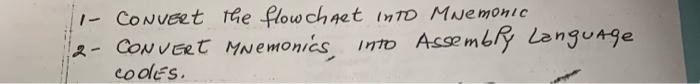 1- CONVERT the flowchart INTO MNemonic
2- CONVERT MNemonics, INTO Assembly Language
codes.